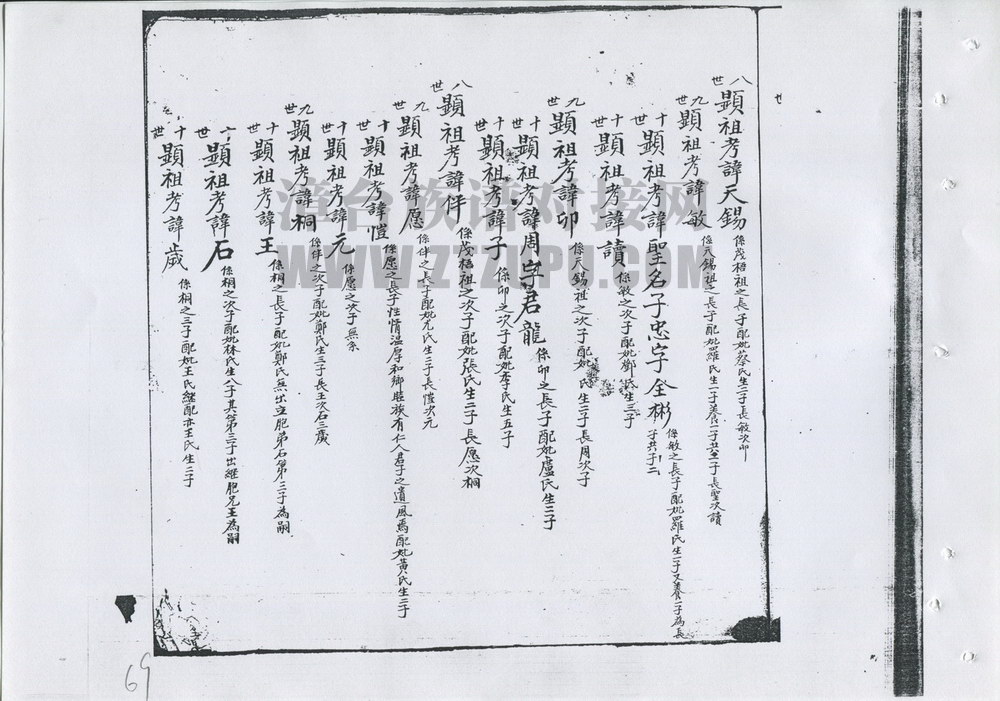 八世 顯祖考諱天錫 係茂梧祖之長子配妣蔡氏生二子長敏次卯
九世 顯祖考諱敏 係天錫祖之長子配妣羅氏生一子養一子共二子長聖次讀
十世 顯祖考諱聖名子忠字全彬 係敏之長子配妣羅氏生一子又養二子為長子共子二
十世 顯祖考諱讀 係敏之次子配妣鄭氏生三子
九世 顯祖考諱卯 係天錫祖之次子配妣 氏生二子長周次子
十世 顯祖考諱周字君龍 係卯之長子配妣盧氏生三子
十世 顯祖考諱子 係卯之次子配妣李氏生五子
八世 顯祖考諱伴 係茂梧祖之次子配妣張氏生二子長愿次桐
九世 顯祖考諱愿 係伴之長子配妣尤氏生二子長愷次元
十世 顯祖考諱愷 係愿之長子性情溫厚和鄉睦族有仁人君子之遺風焉配妣黃氏生二子
十世 顯祖考諱元 係愿之次子無系
九世 顯祖考諱桐 係伴之次子配妣鄭氏生三子長王次石三歲
十世 顯祖考諱王 係桐之長子配妣鄭氏無出立胞弟石第三子為嗣
十世 顯祖考諱石 係桐之次子配妣林氏生八子其第三子出繼胞兄王為嗣
十世 顯祖考諱歲 係桐之三子配妣王氏繼配亦王氏生二子
69
清台族谱对接网
WWW.ZTZUPU.COM